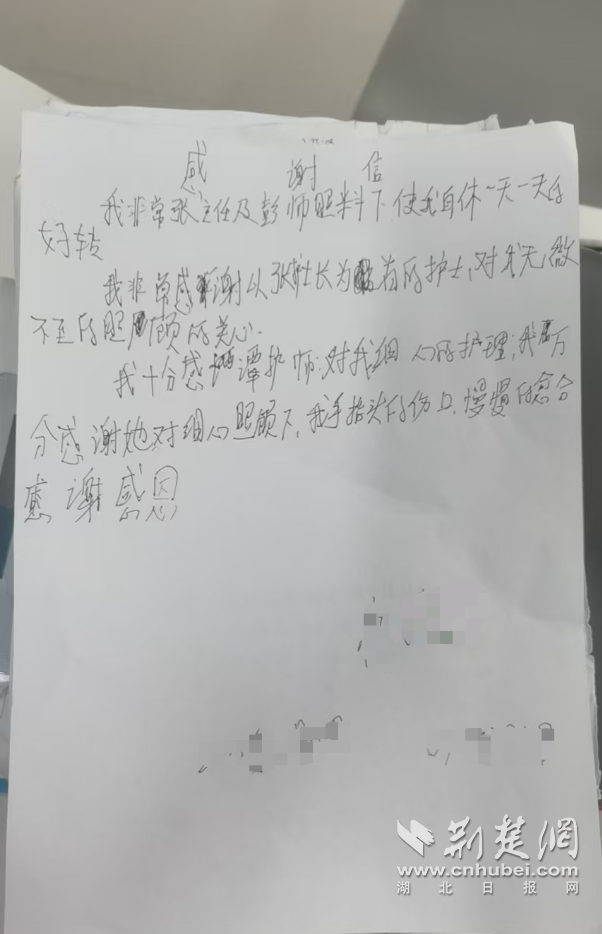 感谢信
我非常张主任及彭师照料下,使我自休一天一天的
好转
我非常感谢以张护士长为首的护士,对我无微
不至的照顾的关心.
我十分感谢谭护师:对我细心的护理,我万
分感谢她对细心照顾下,我手抬头的伤口,慢慢的愈合
感谢感恩
荆楚网
www.cnhubei.com
湖北日报网